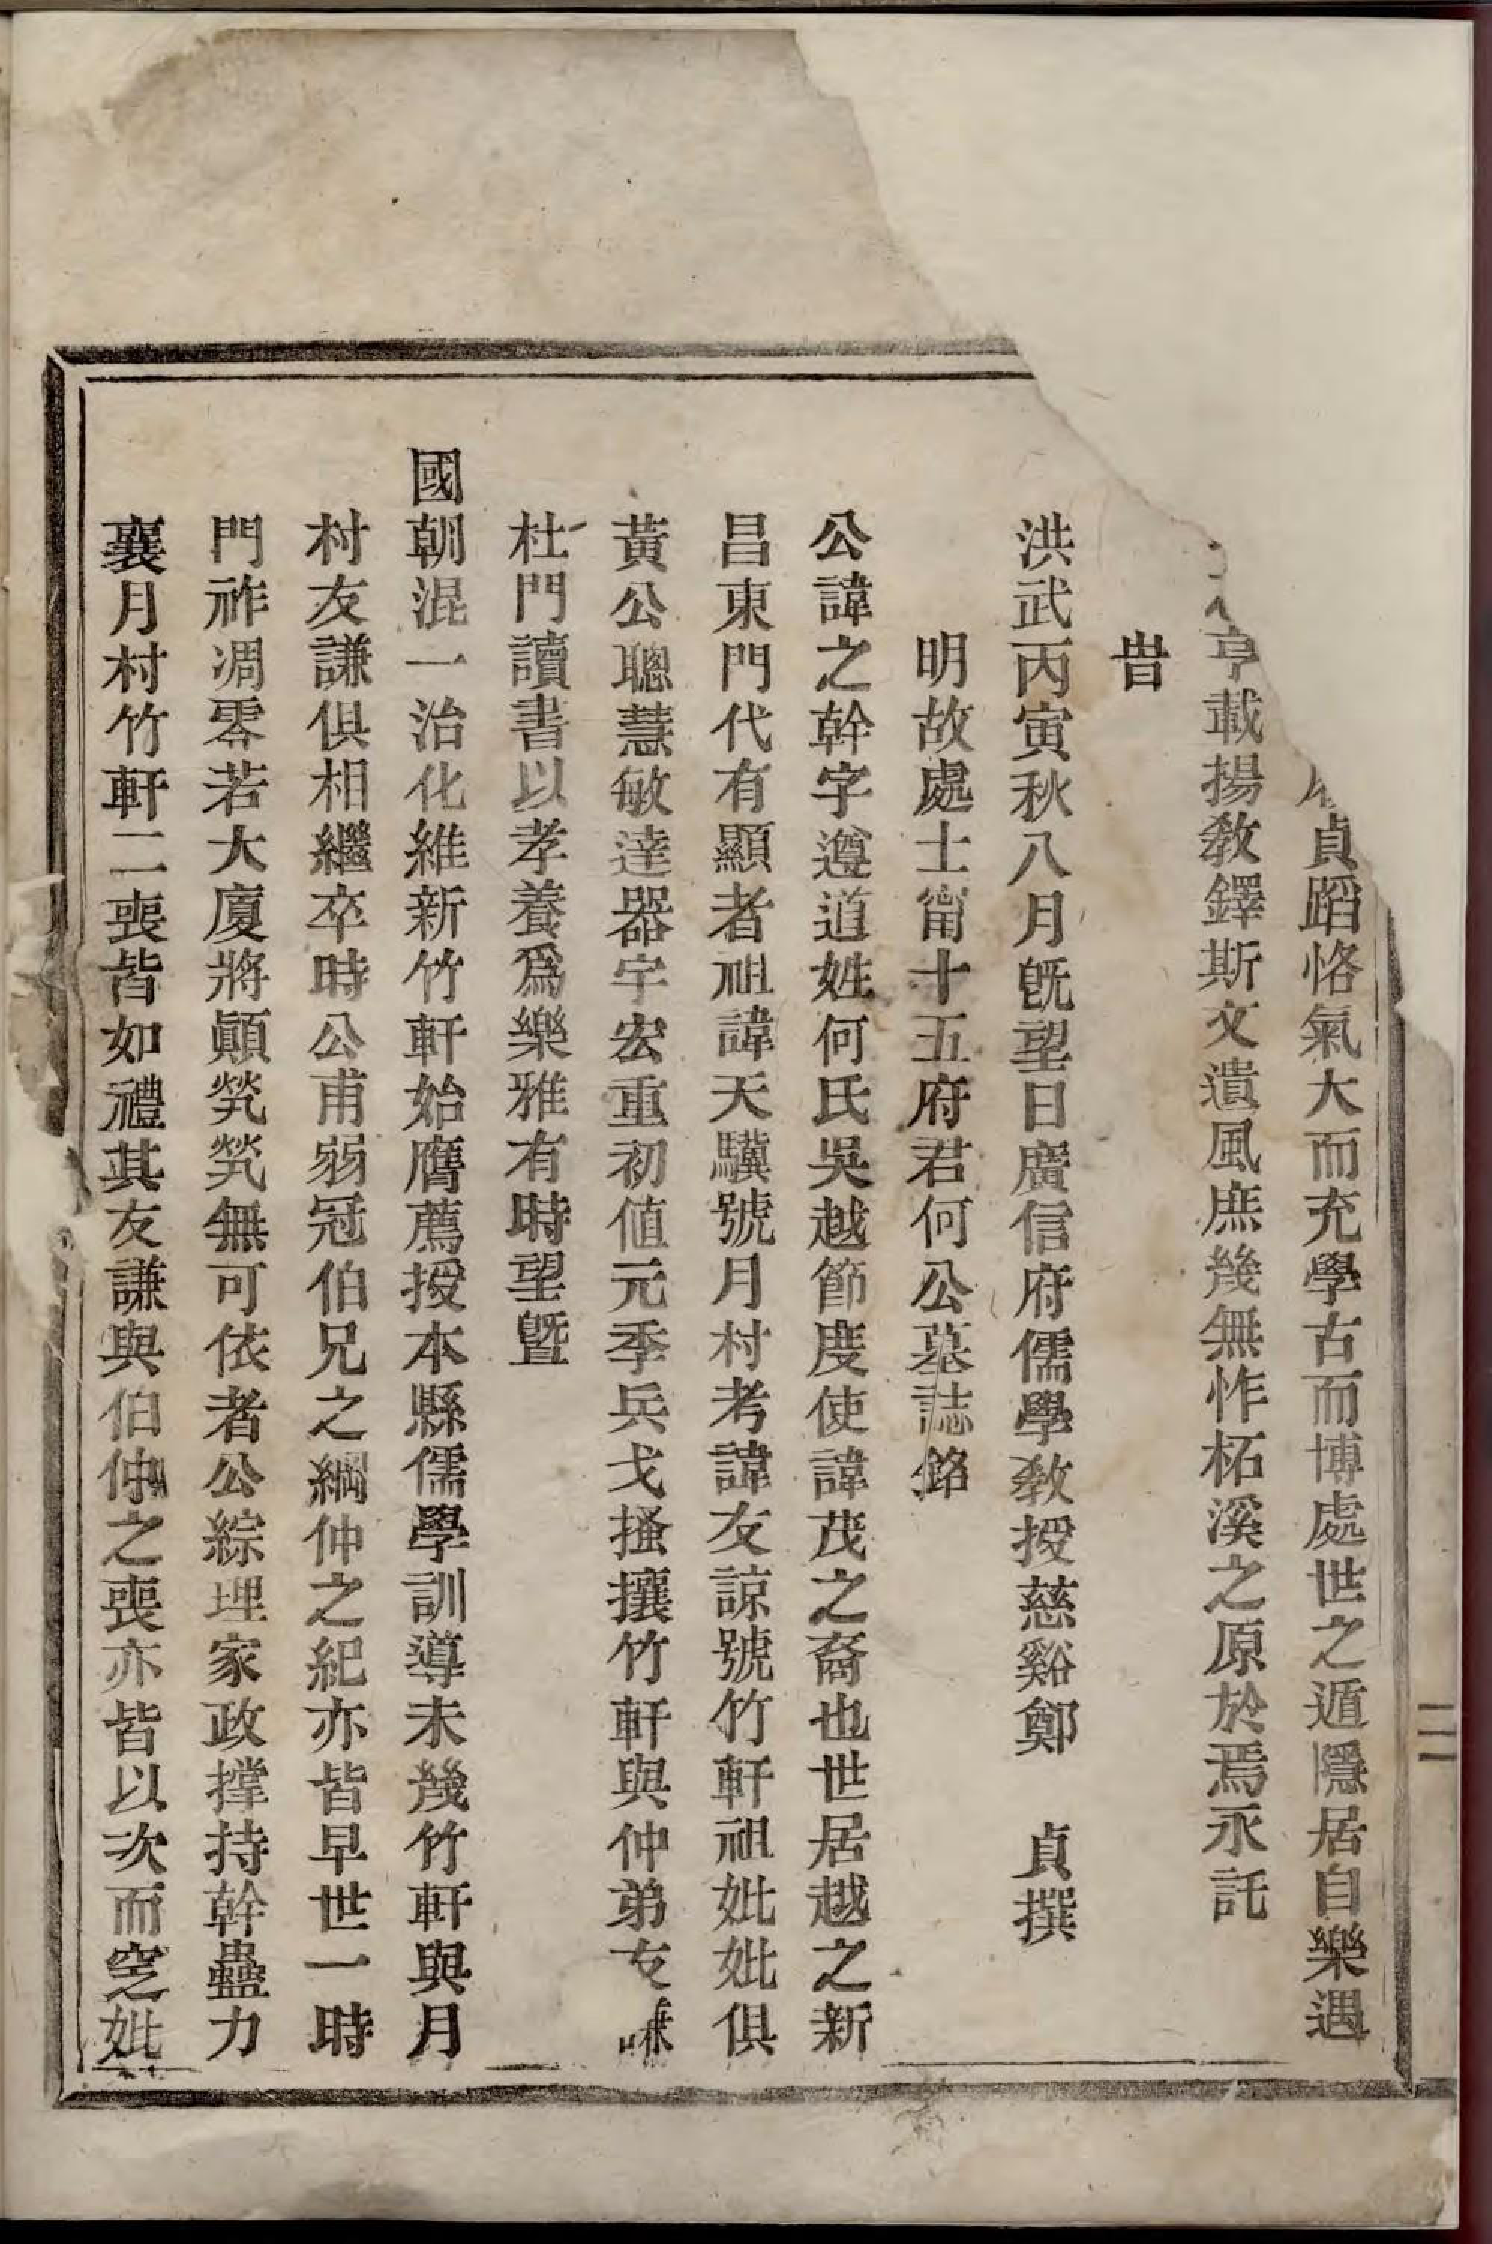 貞蹈恪氣大而充學古而博處世之遁隱居自樂遇
亨載揚敎鐸斯文遺風庶幾無怍柘溪之原於焉永託
旹
洪武丙寅秋八月旣望日廣信府儒學敎授慈谿鄭　貞撰
明故處士甯十五府君何公墓誌銘
公諱之幹字遵道姓何氏吳越節度使諱茂之裔也世居越之新
昌東門代有顯者祖諱天驥號月村考諱友諒號竹軒祖妣妣俱
黃公聰慧敏達器宇宏重初値元季兵戈搔攘竹軒與仲弟友
杜門讀書以孝養爲樂雅有時望曁
國朝混一治化維新竹軒始膺薦授本縣儒學訓導未幾竹軒與月
村友謙俱相繼卒時公甫弱冠伯兄之綱仲之紀亦皆早世一時
門祚凋零若大廈將顚煢煢無可依者公綜理家政撑持幹蠱力
襄月村竹軒二喪皆如禮其友謙與伯仲之喪亦皆以次而窆妣
二